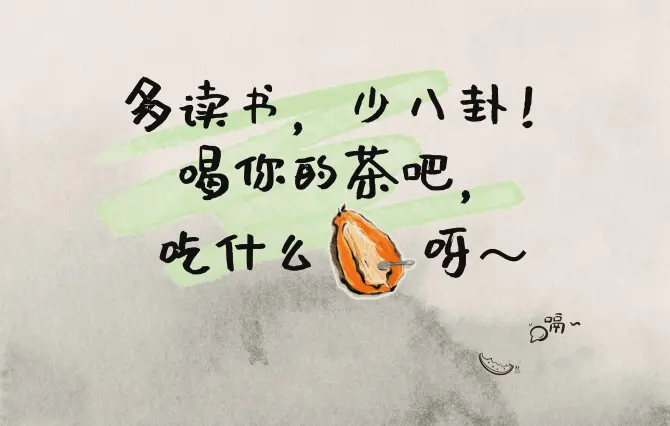 多读书，少八卦！
喝你的茶吧，
吃什么 呀～
嗝~